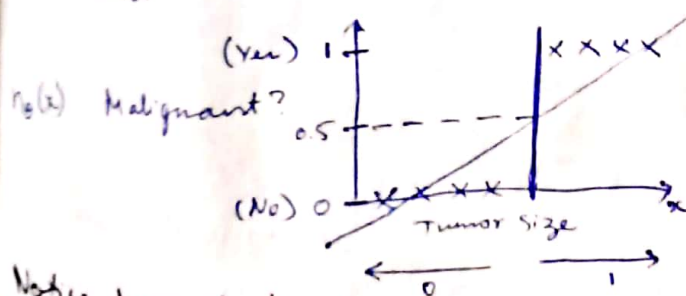 (Yes) 1
hθ(x) Malignant?
0.5
(No) 0
x
Tumor Size
0 1